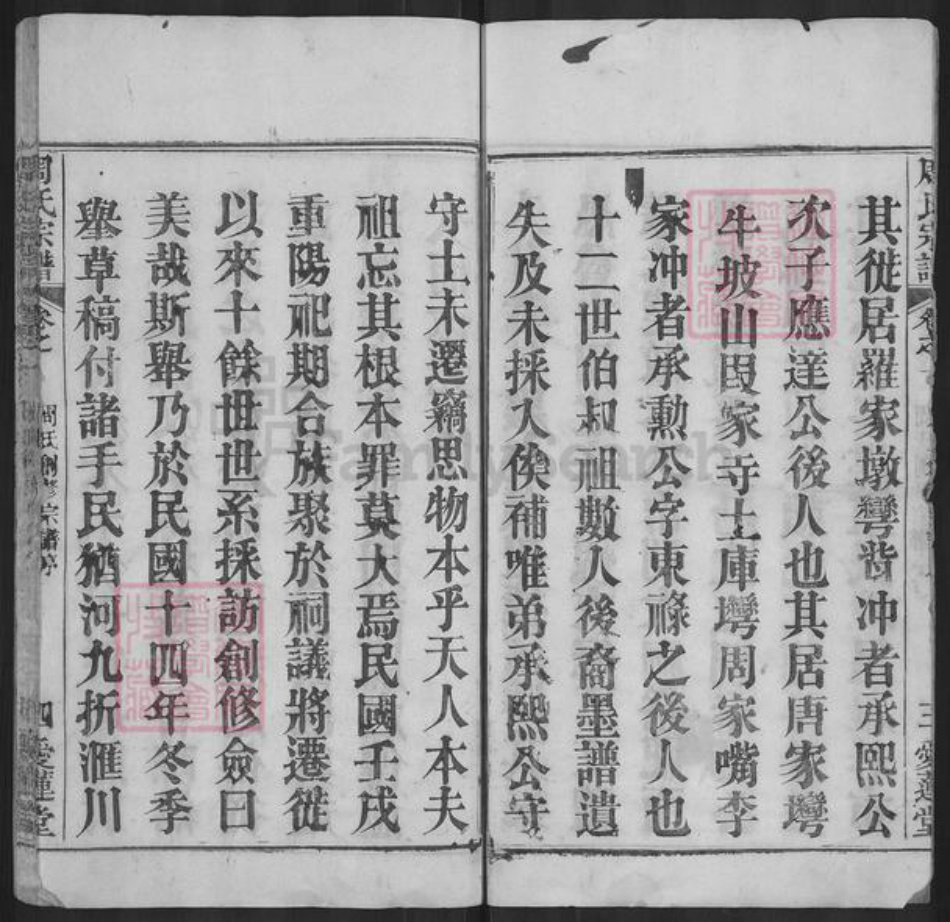 其徙居羅家墩彎背冲者承熙公
次子應達公後人也其居唐家塆
牛坡山段家寺土庫塆周家嘴李
家冲者承勳公字東祿之後人也
十二世伯叔祖數人後裔墨譜遺
失及未採入俟補唯弟承熙公守
守土未遷竊思物本乎天人本夫
祖忘其根本罪莫大焉民國壬戌
重陽祀期合族聚於祠議將遷徙
以來十餘世世系採訪創修僉曰
美哉斯舉乃於民國十四年冬季
舉草稿付諸手民猶河九折滙川
周氏宗譜
卷之
周氏創修宗譜序
四
愛蓮堂
周氏宗譜
三
愛蓮堂
FamilySearch